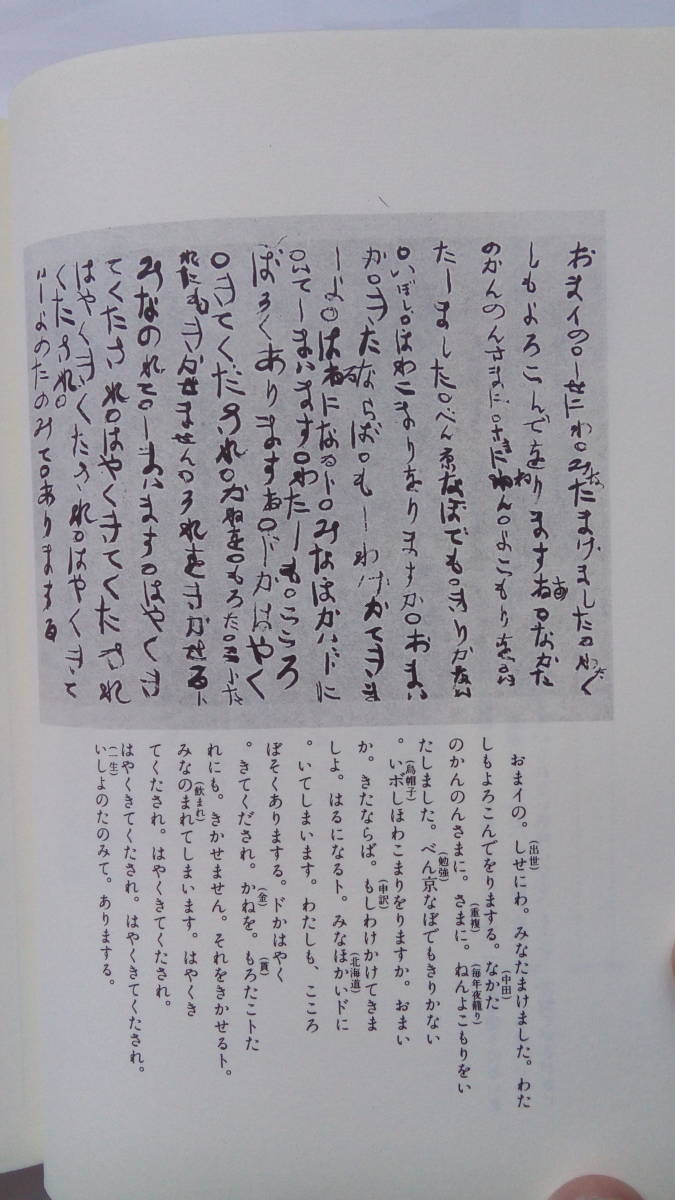 おまイの○しせにわ○みなたまけました○わたく
しもよろこんでをりまする○なかた
のかんのんさまに○さまにねん○よこもりを○い
たしました○べん京なぼでも○きりかない
○いぼし○ほわこまりをりますか○おまい
か○きたならば○もしわけかてきま
しよ○はるになるト○みなほかいドに
○いてしまいます○わたしも○こころ
ぼそくありまする○ドかはやく
○きてくだされ○かねを○もろた○コトた
れにもきかせません○それをきかせるト
みなのれて○しまいます○はやくき
てくたされ○はやくきてくたされ
はやくきてくたされ○はやくきて
くたされ○
いしよのたのみて○ありまする
おまイの。しせ(出世)にわ。みなたまけました。わた
しもよろこんでをりまする。なかた(中田)
のかんのんさまに。さまに(重複)。ねんよこもり(毎年夜籠り)をい
たしました。べん京(勉強)なぼでもきりかない
。いボし(烏帽子)ほわこまりをりますか。おまい
か。きたならば。もしわけ(申訳)かけてきま
しよ。はるになるト。みなほかいド(北海道)に
。いてしまいます。わたしも、こころ
ぼそくありまする。ドかはやく
。きてくだされ。かね(金)を。もろた(貰)こトた
れにも。きかせません。それをきかせるト。
みなのまれて(飲まれ)しまいます。はやくき
てくたされ。はやくきてくたされ。
はやくきてくたされ。はやくきてくたされ。
いしよ(一生)のたのみて。ありまする。